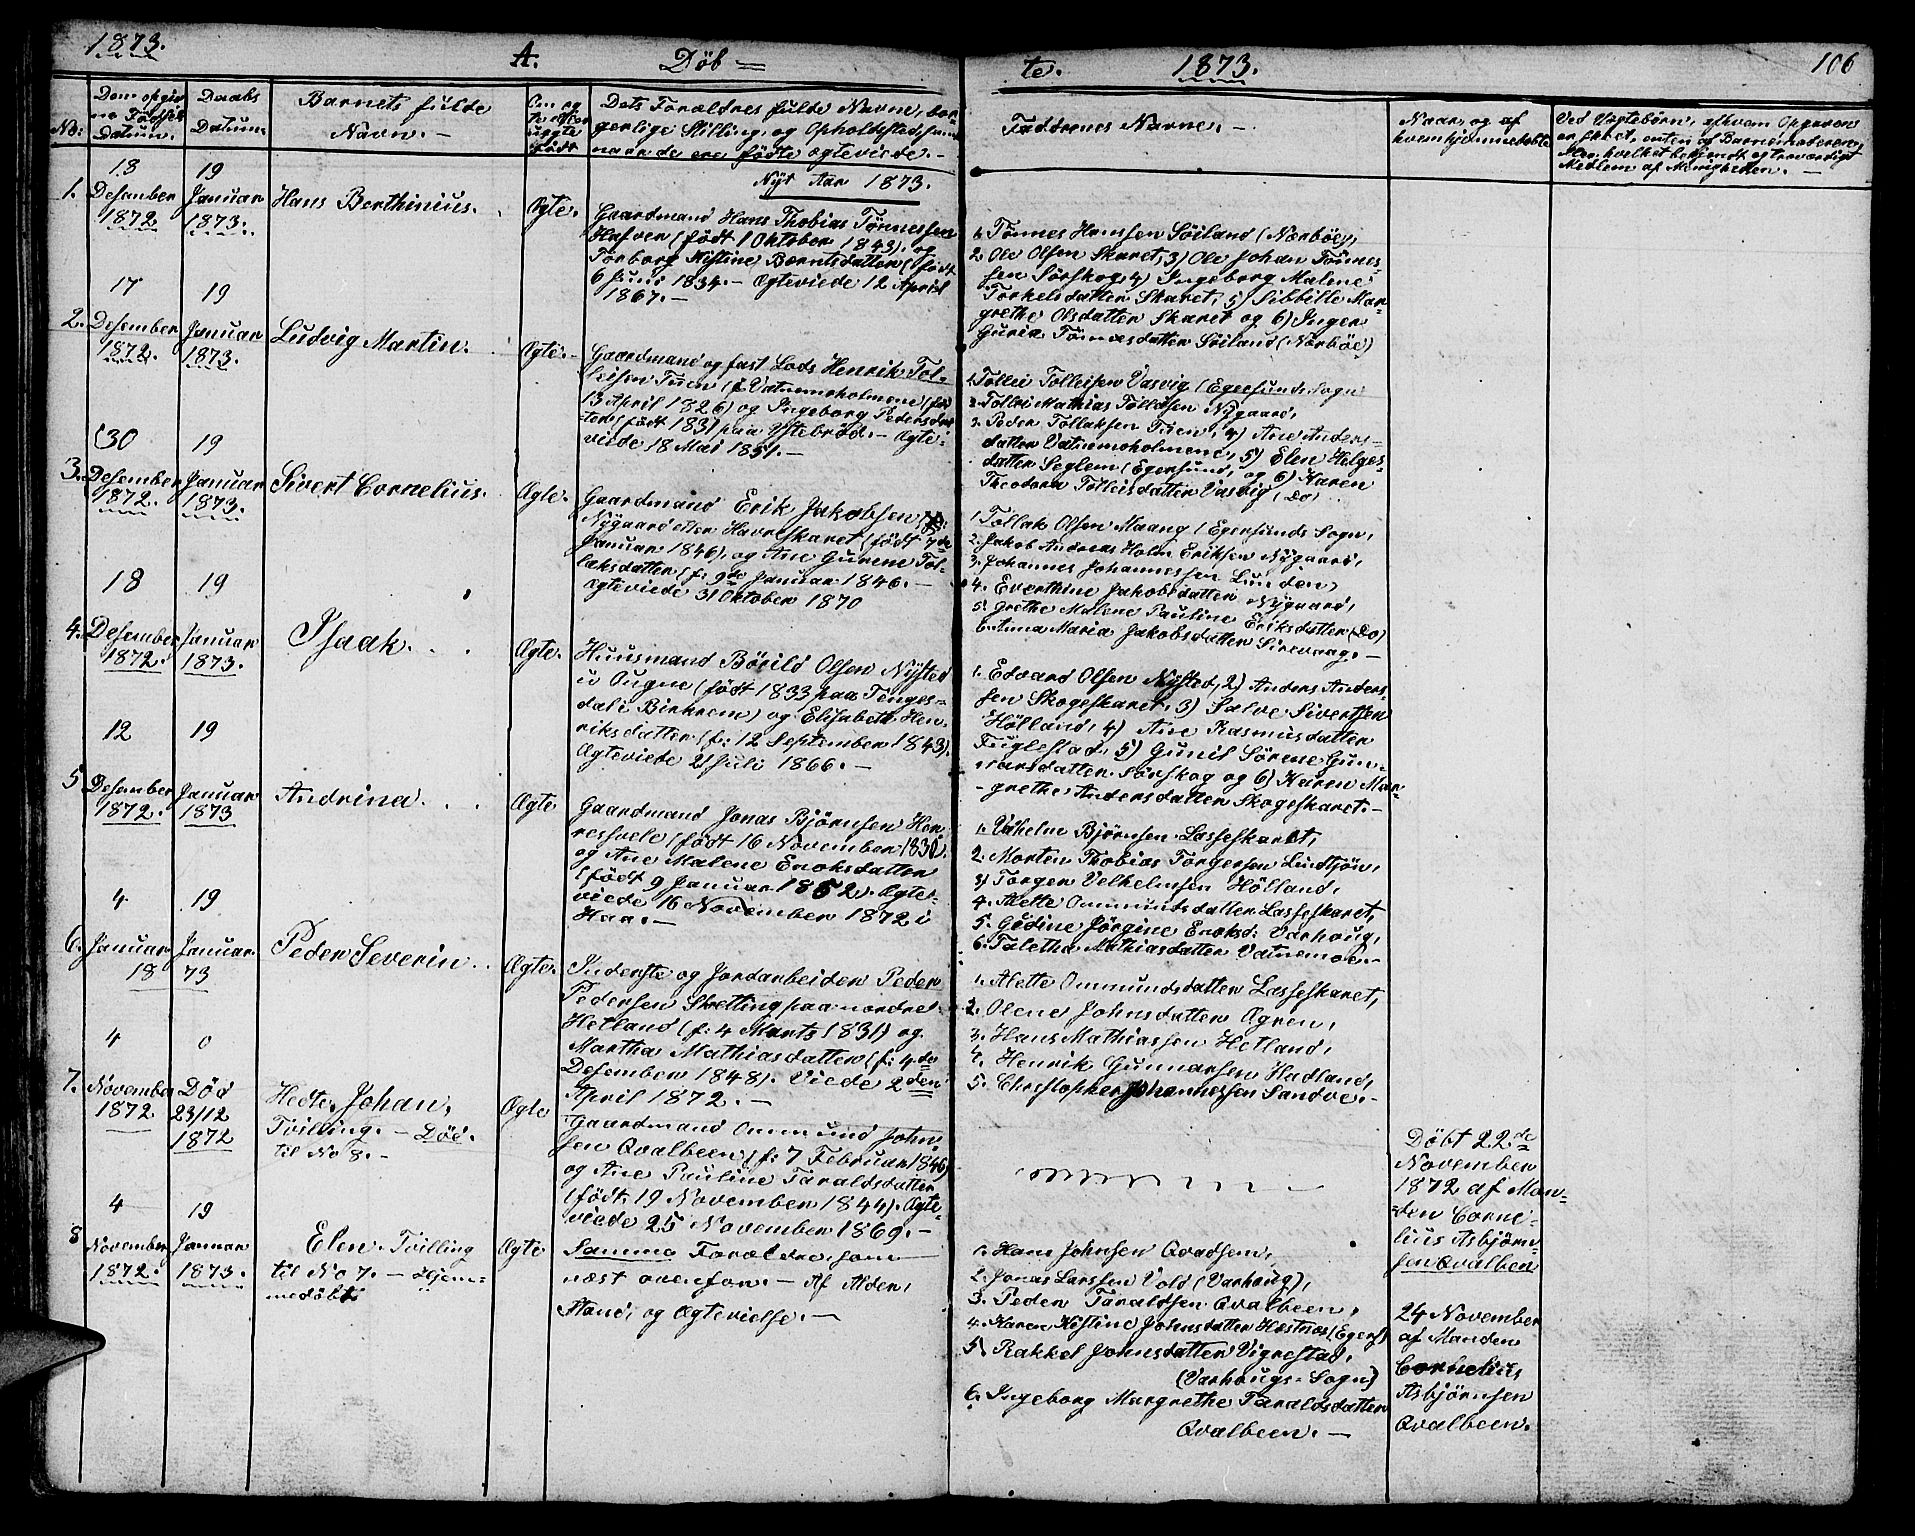 1873.
A.
Døb =
te.
1873.
106
No:
Den opgiv
ne Fødsels
Datum.
Daabs
Datum.
Barnets fulde
Navn. —
Om æg
te eller
uægte
født
Dets Forældres fulde Navne, bor-
gerlige Stilling, og Opholdssted, samt
naar de ere fødte ægteviede. —
Faddrenes Navne. —
Naar, og af
hvem hjemmedøbt
Ved Uægtebørn, efter hvem Opgaven
er skeet, enten af Barnemoderen
eller hvilket bekjendt og troværdigt
Medlem af Menigheden. —
Nyt Aar 1873.
1.
13
Desember
1872
19
Januar
1873.
Hans Berthinius.
Ægte.
Gaardmand Hans Thobias Tønnessen
Hafver (født 1 Oktober 1843), og
Torborg Kistine Berntsdatter (født
6 Juni 1834. — Ægteviede 12 April
1867. —
1. Tønnes Hansen Søiland (Nærbøe),
2. Ole Olsen Skaret, 3) Ole Johan Tønnes-
sen Sørskog, 4) Ingeborg Malene
Torkelsdatter Skaret, 5) Sibbille Mar-
grethe Olsdatter Skaret og 6) Inger
Guria Tønnesdatter Søiland (Nærbøe)
2.
17
Desember
1872.
19
Januar
1873.
Ludvig Martin.
Ægte. —
Gaardmand og fast Lods Henrik Tol-
leisen Tuen (f. Vatnemoholmene (fød
13 April 1826) og Ingeborg Pedersdat
ter (født 1831 paa Ystebrød. — Ægte-
viede 18 Mai 1851. —
1. Tollei Tolleisen Vasvig (Egersunds Sogn
2. Tollei Mathias Tolleisen Nygaard,
3. Peder Tollaksen Tuen, 4) Ane Anders-
datter Vatnemoholmene, 5) Elen Helges-
datter Seglem (Egersund, og 6) Karen
Theodora Tolleisdatter Vasvig (Do)
3.
30
Desember
1872.
19
Januar
1873.
Sivert Cornelius.
Ægte.
Gaardmand Erik Jakobsen (f:
Nygaard eller Havreskaret (født 7de
Januar 1846), og Ane Gurene Tol-
laksdatter (f: 9de Januar 1846. —
Ægteviede 31 Oktober 1870
1. Tollak Olsen Maang (Egersunds Sogn,
2. Jakob Andreas Holm Eriksen Nygaard,
3. Johannes Johannessen Lunden,
4. Everthine Jakobsdatter Nygaard,
5. Grethe Malene Pauline Eriksdatter (Do)
6. Anna Maria Jakobsdatter Sirevaag. —
4.
18
Desember
1872.
19
Januar
1873.
Isaak. . .
Ægte.
Huusmand Bøeild Olsen Nysted
u Ougne (født 1833 paa Tenges-
dal i Birkrem) og Elisabeth Hen-
riksdatter (f: 12 September 1843).
Ægteviede 2 Juli 1866. —
1. Edvard Olsen Nysted, 2) Anders Anders-
sen Skogeskaret, 3) Salve Sivertsen
Hølland, 4) Ane Rasmusdatter
Fuglestad, 5) Gunil Sørene Gun-
narsdatter Sørskog og 6) Karen Mar-
grethe Andersdatter Skogeskaret. —
5
12
Desember
1872.
19
Januar
1873
Andrina. . .
Ægte.
Gaardmand Jonas Bjørnsen Her-
resvele (født 16 November 1830)
og Ane Malene Enoksdatter
(født 9 Januar 1852). Ægte-
viede 16 November 1872 i
Haa. —
1. Vilhelm Bjørnsen Lasseskaret,
2. Morten Thobias Torgersen Lindtjøn,
3) Torger Velhelmsen Hølland,
4. Alette Ommundsdatter Lasseskaret,
5. Gedine Jørgine Enoksd: Varhoug,
6. Taletha Mathiasdatter Vatnemoe. —
6.
4
Januar
18
19
Januar
73
Peder Severin. .
Ægte.
Inderste og Jordarbeider Peder
Pedersen Skretting paa nordre
Hetland (f: 4 Marts 1831) og
Martha Mathiasdatter (f: 4de
Desember 1848). Viede 2den
April 1872. —
1. Alette Ommundsdatter Lasseskaret,
2. Olene Johnsdatter Ægren,
3. Hans Mathiassen Hetland,
4. Henrik Gunnarsen Hadland,
5. Christopher Johannessen Sandve. —
7.
4
November
1872.
0
Død
23/12
1872
Hedte Johan,
Tvilling. — Død.
til No 8. —
Ægte
Gaardmand Ommund John-
sen Qvalbeen (f: 7 Februar 1846)
og Ane Pauline Taraldsdatter
(født 19 November 1844). Ægte-
viede 25 November 1869. —
Døbt 22de
November
1872 af Man-
den Corne-
lius Asbjørn-
sen Qvalbeen
8
4
November
1872.
19
Januar
1873.
Elen. Tvilling
til No 7. — Hjem-
medøbt
Ægte
Samme Forældre som
næst ovenfor. — Af Alder,
Stand, og Ægtevielse. —
1. Hans Johnsen Qvadsem,
2. Jonas Larssen Vold (Varhoug),
3. Peder Taraldsen Qvalbeen,
4. Karen Kistine Johnsdatter Hæstnæs (Egers)
5. Rakkel Johnsdatter Vigrestad,
(Varhougs = Sogn)
6. Ingeborg Margrethe Taraldsdatter
Qvalbeen. —
24 November
af Manden
Cornelius
Asbjørnsen
Qvalbeen.